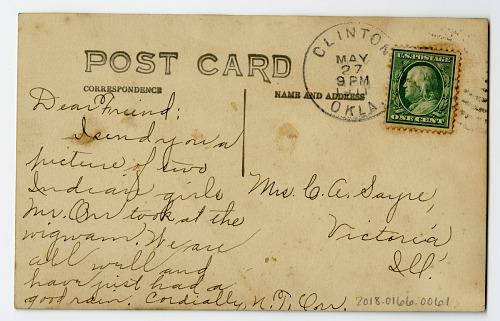 POST CARD
CORRESPONDENCE
NAME AND ADDRESS
CLINTON
MAY
27
9 PM
OKLA.
U.S. POSTAGE
ONE CENT
Dear Friend;
I send you a
picture of two
Indian girls
Mr. Orr took at the
wigwam. We are
all well and
have just had a
good rain. Cordially, N. T. Orr.
Mrs. C. A. Sayre,
Victoria
Ill.
2018.0166.0061